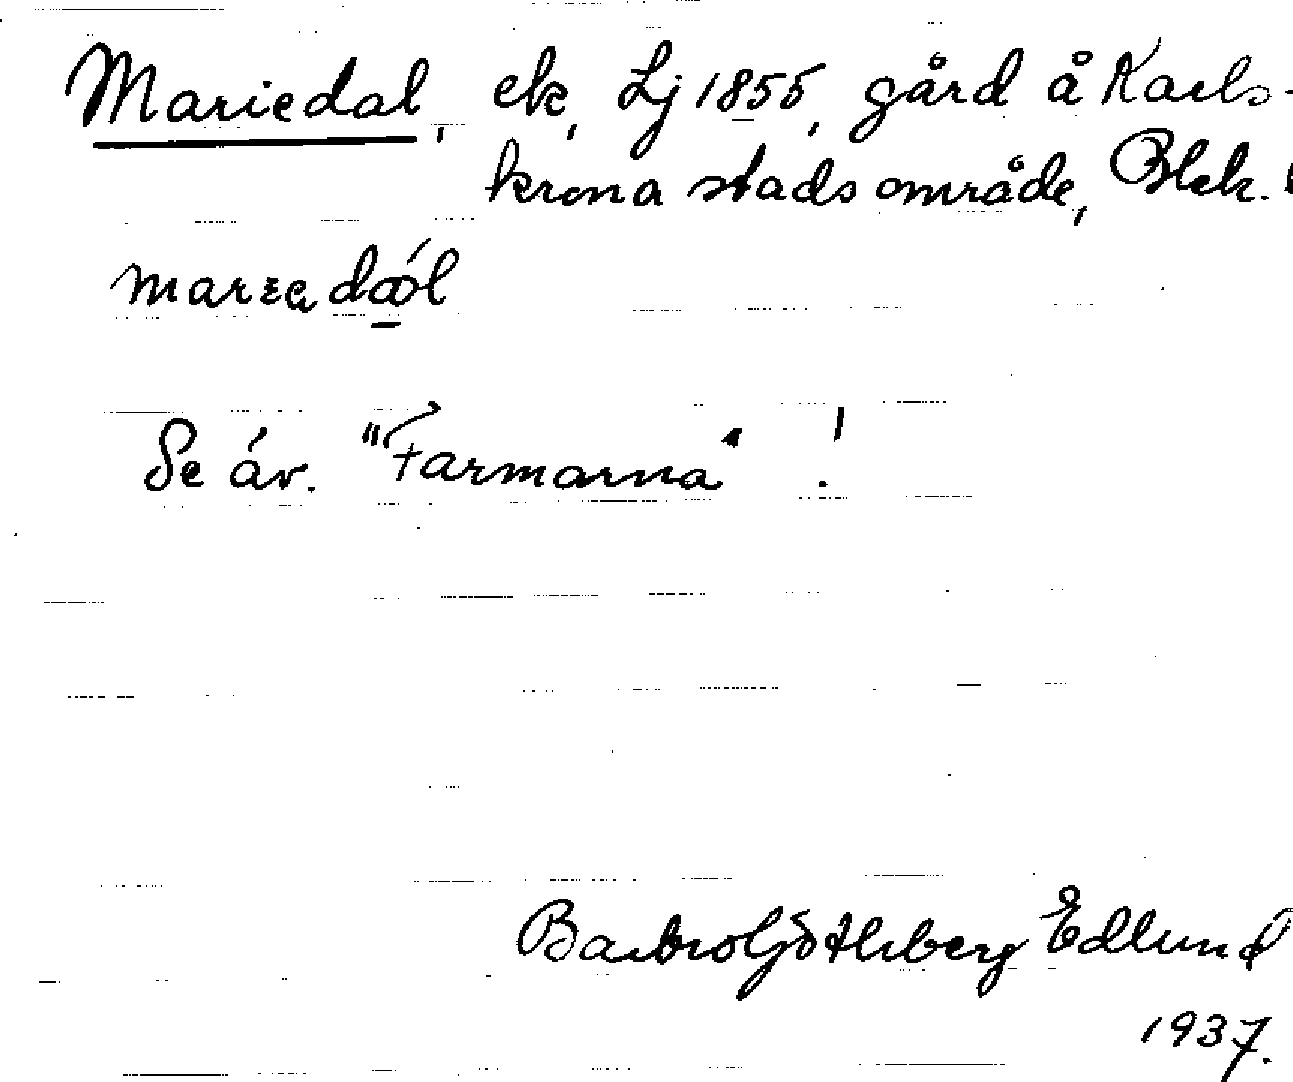 Mariedal, ek, Lj 1855, gård å Karls-
krona stadsområde, Blek.
Se äv. "Farmarna" !
Göthberg Edlund
1937.